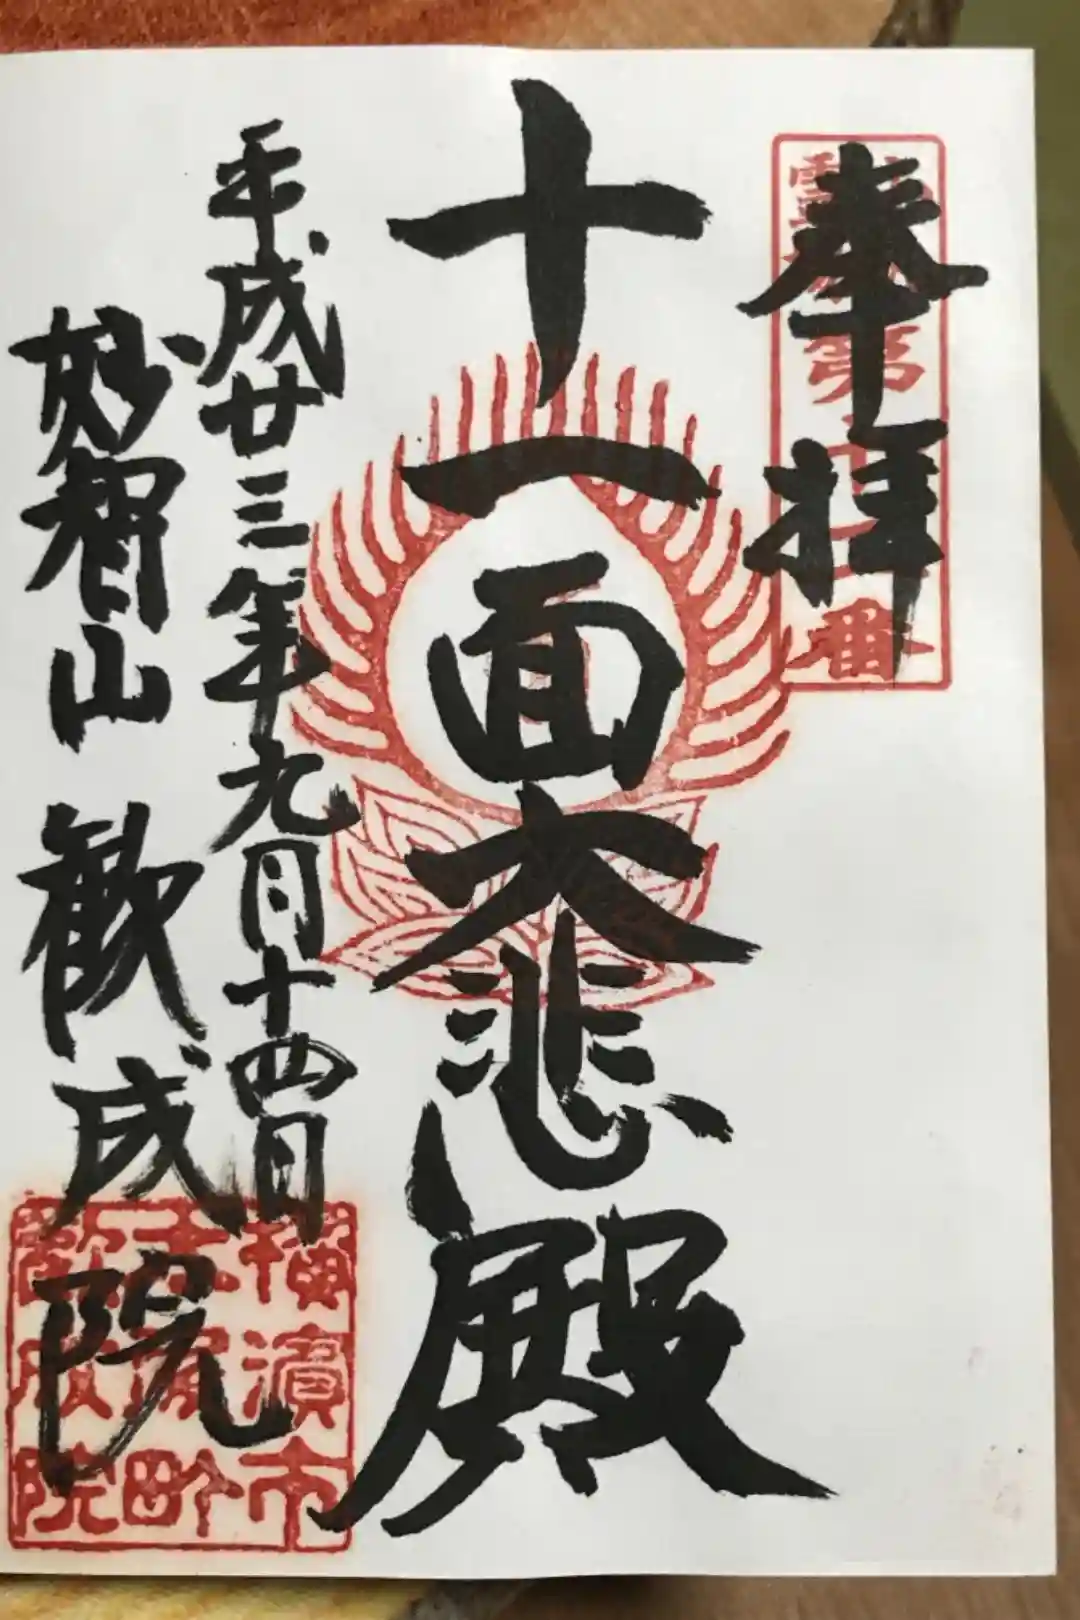 奉拝
十一面大悲殿
平成廿三年九月十四日
妙智山 歓成院
横濱市
大塚町
歓成院